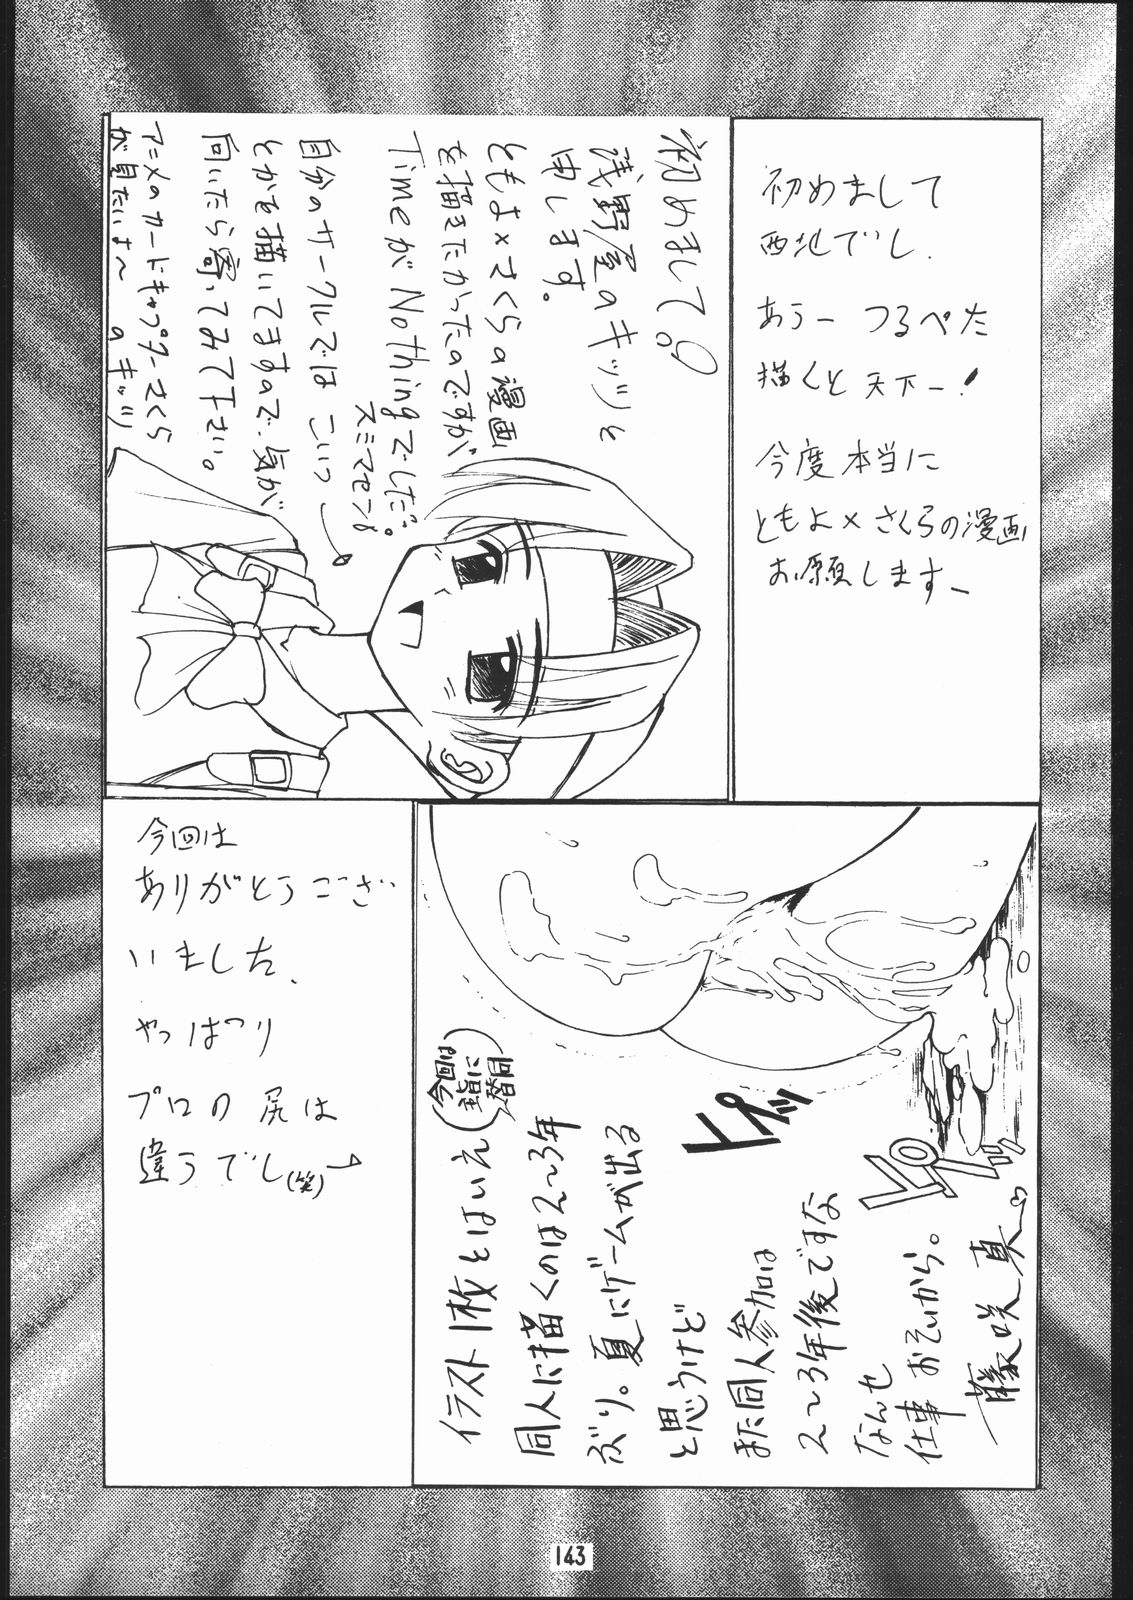 初めまして
西地でし.
あうー つるぺた
描くと天下一!
今度本当に
ともよ×さくらの漫画
お願いします-
初めまして。
浅野屋のキッツと
申します。
ともよ×さくらの漫画
を描きたかったのですが
TimeがNothingでした。
スミマセン。
自分のサークルでは こいつ
とかを描いてますので、気が
向いたら寄ってみて下さい。
アニメのカードキャプターさくら
が見たいよ〜 のキッツ
今回は
ありがとうござ
いました.
やっぱり
プロの尻は
違うでし(笑)
ピッ
ピッ
イラスト1枚とはいえ
(今回は
主旨に
賛同)
同人に描くのは2〜3年
ぶり。夏にゲームが出る
と思うけど
また同人参加は
2〜3年後ですな
なんせ
仕事おそいから。
藤咲真
143